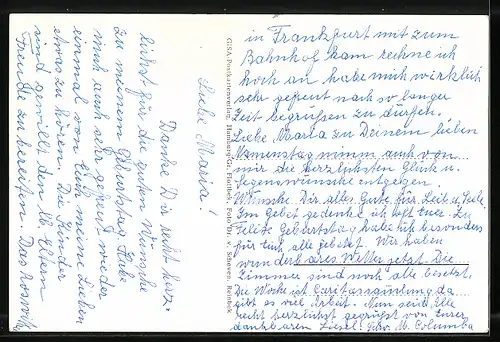 Liebe Maria!
Danke Dir recht herz-
lichst für die guten Wünsche
zu meinem Geburtstag. Habe
mich auch sehr gefreut wieder
einmal von Euch meine Lieben
etwas zu hören. Die Kinder
sind gewillt den lb. Eltern
Freude zu bereiten. Das
GISA-Postkartenverlag, Hamburg-Gr. Flottbek, Foto Dr. v. Scheven, Reinbek
in Frankfurt mit zum
Bahnhof kam rechne ich
hoch an habe mich wirklich
sehr gefreut nach so langer
Zeit begrüßen zu dürfen.
Liebe Maria zu Deinem lieben
Namenstag nimm auch von
mir die herzlichsten Glück u.
Segenswünsche entgegen.
Wünsche Dir alles Gute für Leib u. Seele.
Im Gebet gedenke ich oft Eurer. Zu
Geburtstag habe ich besonders
für Euch alle gebetet. Wir haben
wunderbares Wetter jetzt. Die
Zimmer sind noch alle besetzt.
Die Woche ist Caritassammlung da
gibt es viel Arbeit. Nun seid Alle
recht herzlichst gegrüßt von Eurer
dankbaren Liesel. Schw. M. Columba